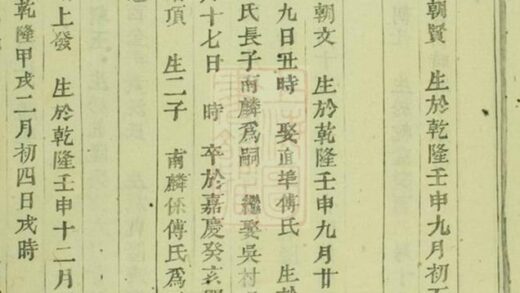 朝賢 生於乾隆壬申九月初
朝文 生於乾隆壬申九月廿
九日丑時 娶直埠傅氏 生於
氏長子南麟為嗣 繼娶吳村
十七日 時 卒於嘉慶癸亥
項 生二子 南麟係傅氏為
上發 生於乾隆壬申十二月
乾隆甲戌二月初四日戌時